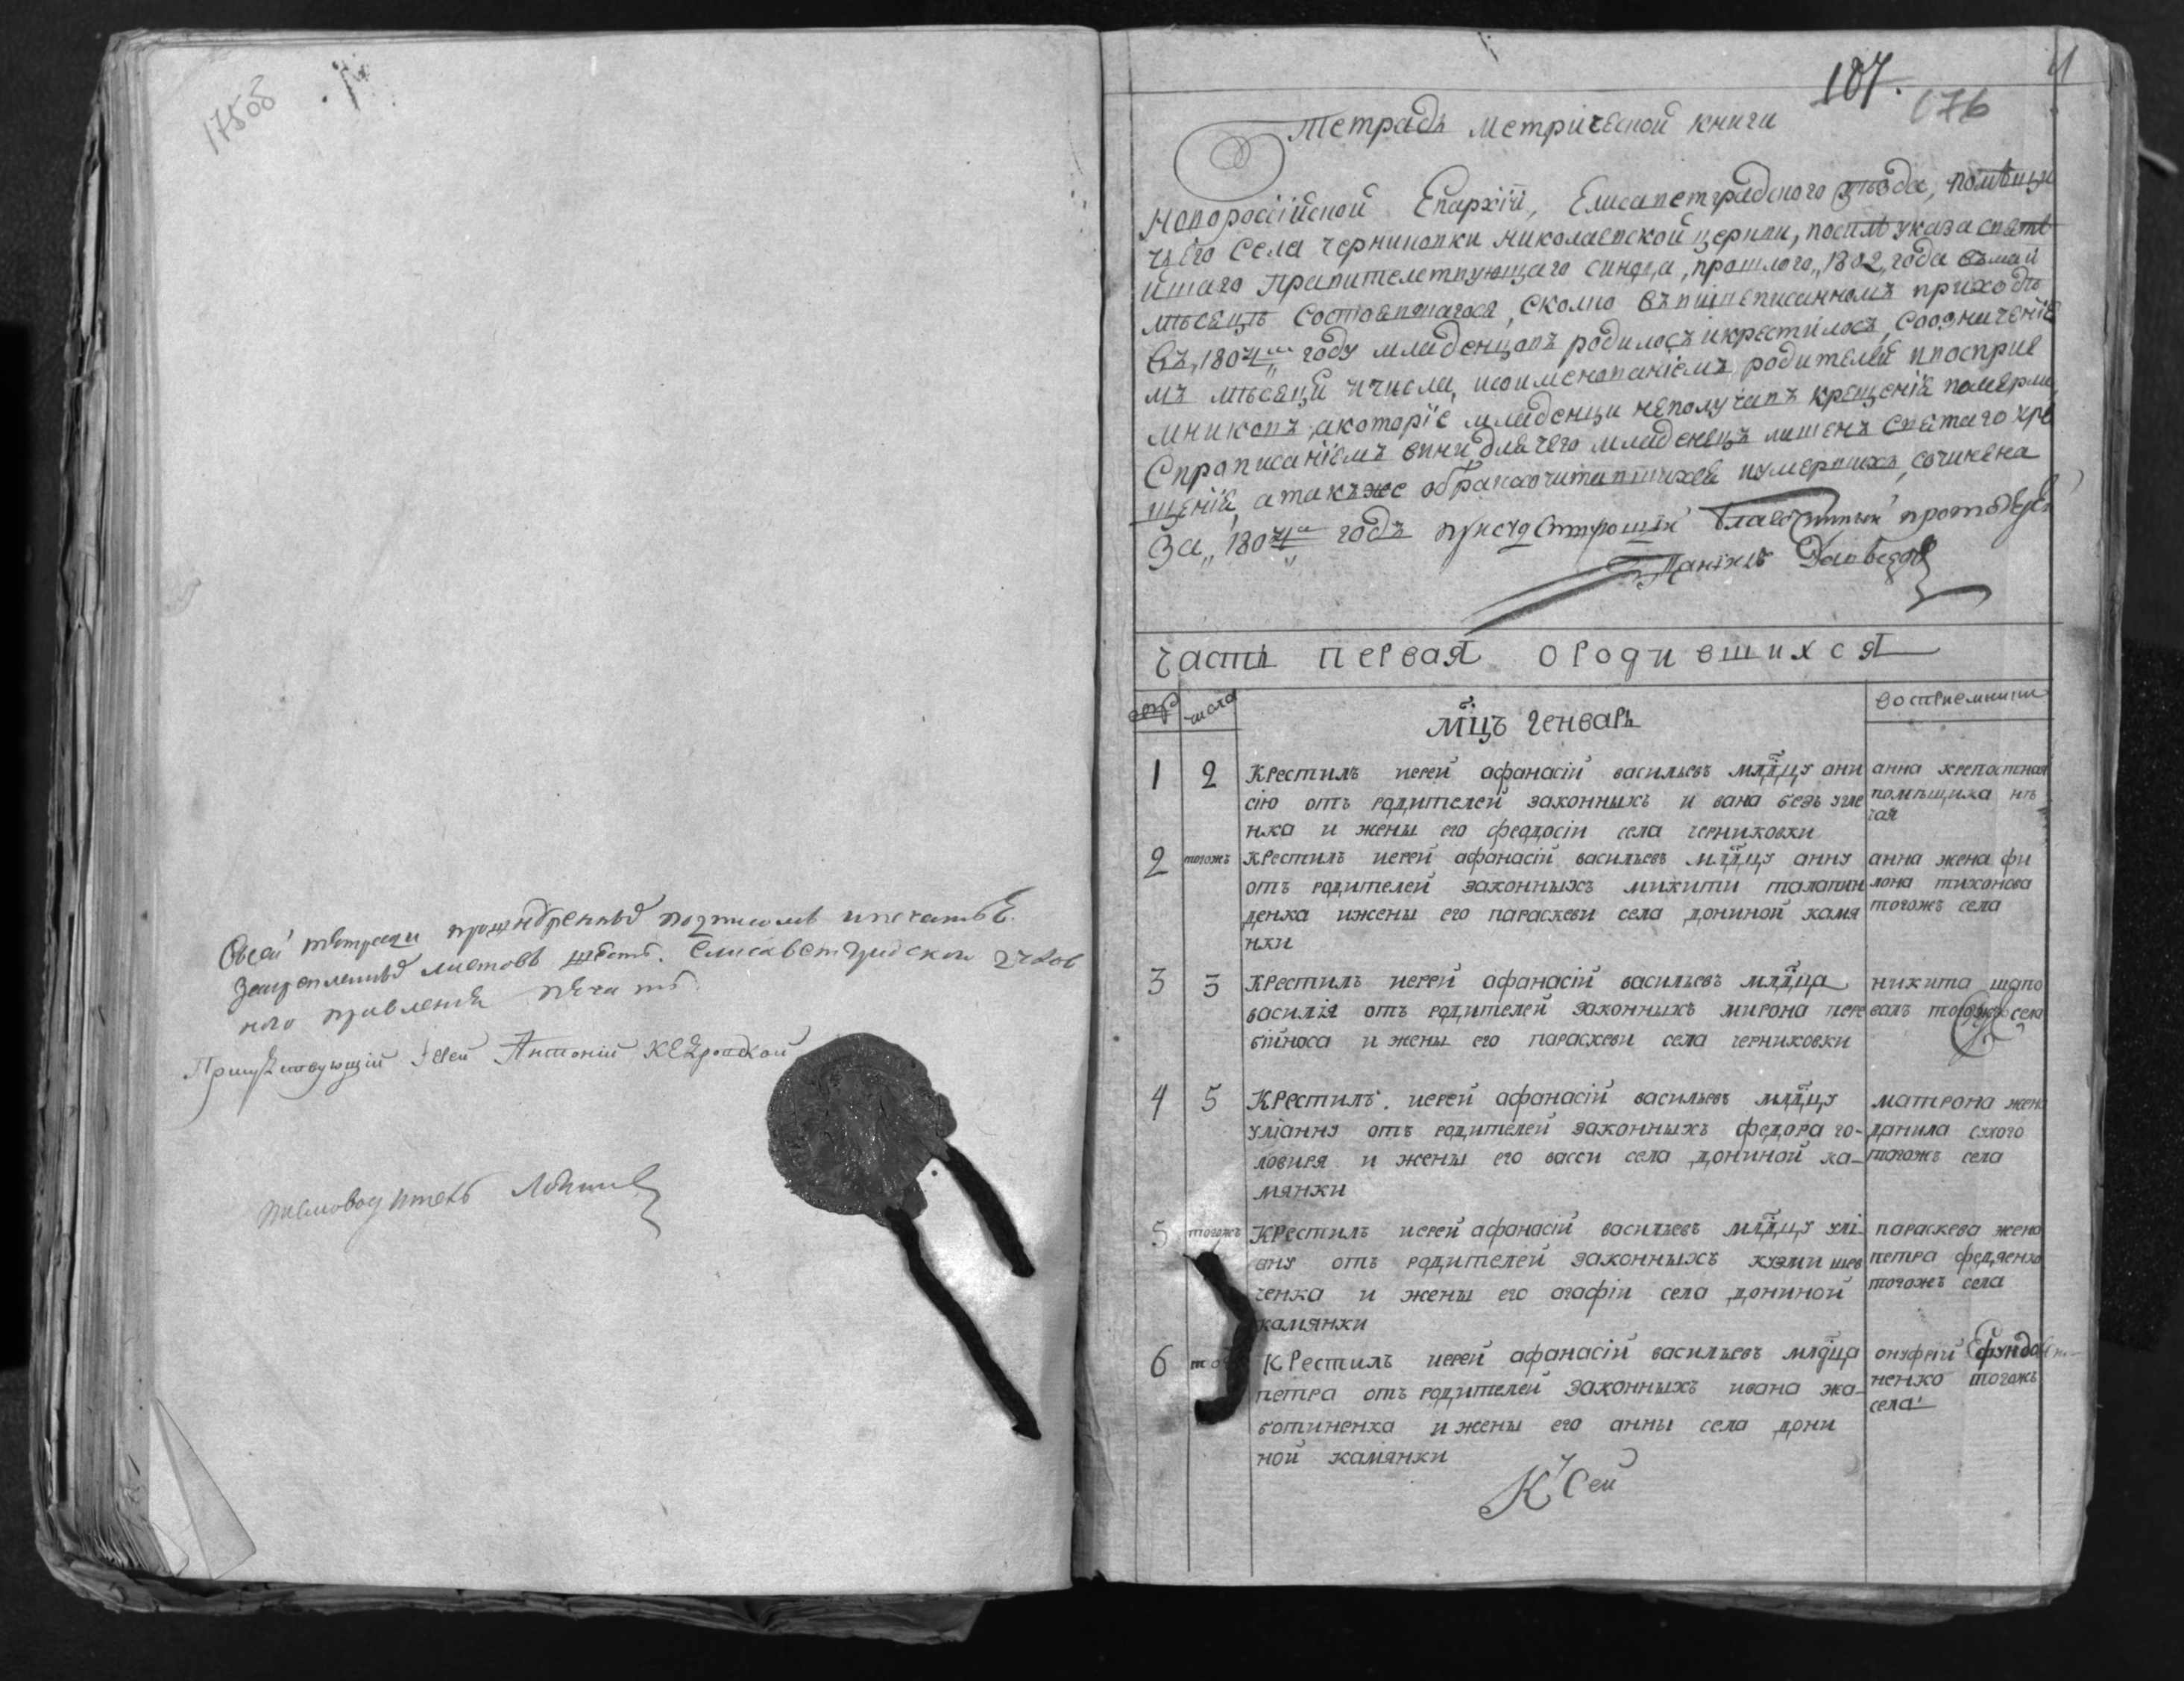 175об
Овсей тетради прошнурен подписомъ и печатью
листовъ шесть. Елисаветградского духов
ного правления печать
Присуствующий Иерей Антоний
писмоводитель
187.
176
Тетрадь метрической книги
Новороссійской Епархіи, Елисаветградского уезда, помѣщи
чьего села черниковки николаевской церкви, посилѣ указа святѣ
йшаго правителствующаго синода, прошлого, 1802, года въ маи
мѣсяцѣ состоявшагося, сколко въ вишеписанномъ приходѣ
въ, 1804м году младенцовъ родилось и крестилось, со означеніе
мъ мѣсяци и числа, и соименованіемъ родителей и восприе
мниковъ, и которіе младенци не получавъ крещенія померли,
с прописаніемъ вини, для чего младенецъ лишенъ святаго кре
щенія, а также о бракосочитавшихся и умершихъ, сочинена
За, 1804й годъ присудствующій благочинный протоіерей
Даніилъ
часть первая о родившихся
число
мцъ генварь
восприемники
1 2 крестилъ иерей афанасій васильевъ млдцу ани
сію отъ родителей законныхъ ивана безъугле
нка и жены его феодосіи села черниковки
анна крепостная
помѣщика не
чая
2 тогожъ крестилъ иерей афанасій васильевъ млдцу анну
отъ родителей законныхъ микити талалин
денка и жены его параскеви села дониной камя
нки
анна жена фи
лона тихонова
тогожъ села
3 3 крестилъ иерей афанасій васильевъ млдца
василія отъ родителей законныхъ мирона пере
бийноса и жены его параскеви села черниковки
никита шапо
валъ тогожъ села
4 5 крестилъ иерей афанасій васильевъ млдцу
уліанну отъ родителей законныхъ федора го-
ловиря и жены его васси села дониной ка-
мянки
матрона жена
данила сухого
тогожъ села
5 тогожъ крестилъ иерей афанасій васильевъ млдцу улі
ану отъ родителей законныхъ кузми шев
ченка и жены его агафіи села дониной
камянки
параскева жена
петра федяенка
тогожъ села
6 крестилъ иерей афанасій васильевъ млдца
петра отъ родителей законныхъ ивана жа-
ботиненка и жены его анны села дони
ной камянки
онуфрий
ненко тогожъ
села
К Сей